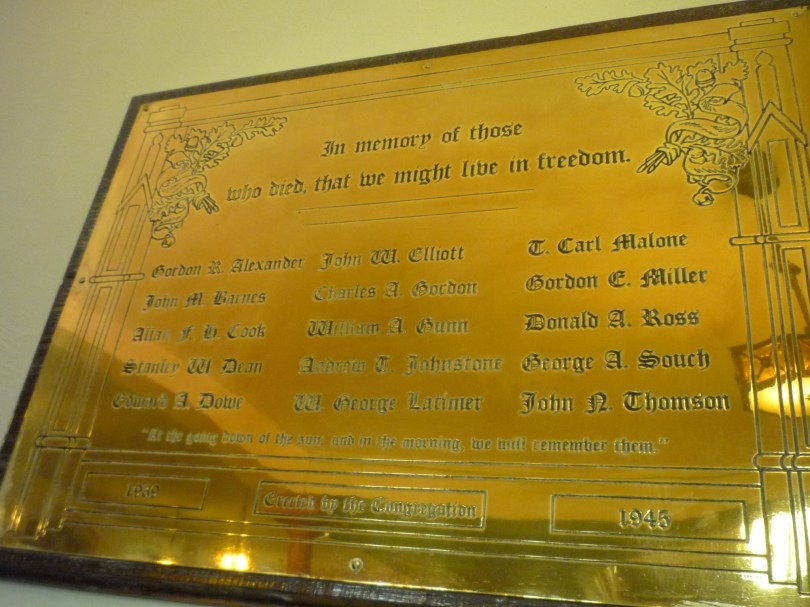 In memory of those
who died, that we might live in freedom.
Gordon R. Alexander John W. Elliott T. Carl Malone
John M. Barnes Charles A. Gordon Gordon E. Miller
Allan F. H. Cook William A. Gunn Donald A. Ross
Stanley W. Dean Andrew T. Johnstone George A. Souch
Edward A. Dowe W. George Latimer John N. Thomson
"At the going down of the sun, and in the morning, we will remember them."
1939 Erected by the Congregation 1945